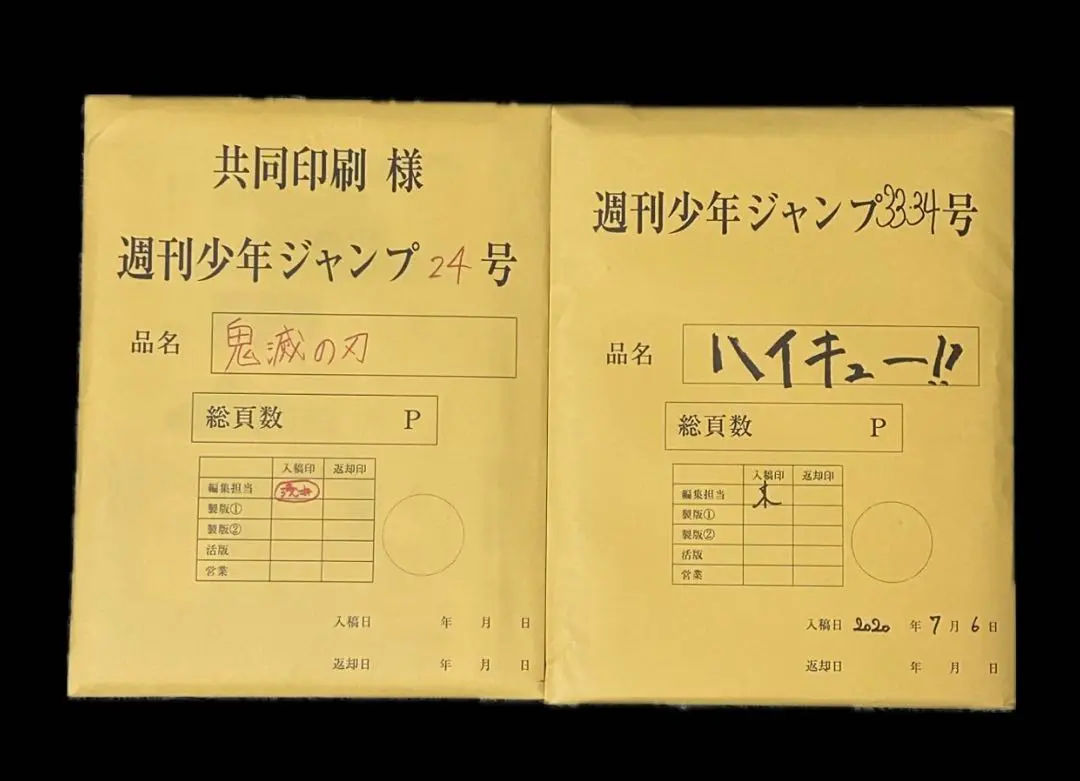 共同印刷 様
週刊少年ジャンプ24号
品名 鬼滅の刃
総頁数 P
入稿印 返却印
編集担当
製版①
製版②
活版
営業
入稿日 年 月 日
返却日 年 月 日
週刊少年ジャンプ33.34号
品名 ハイキュー!!
総頁数 P
入稿印 返却印
編集担当 本
製版①
製版②
活版
営業
入稿日 2020 年 7 月 6 日
返却日 年 月 日